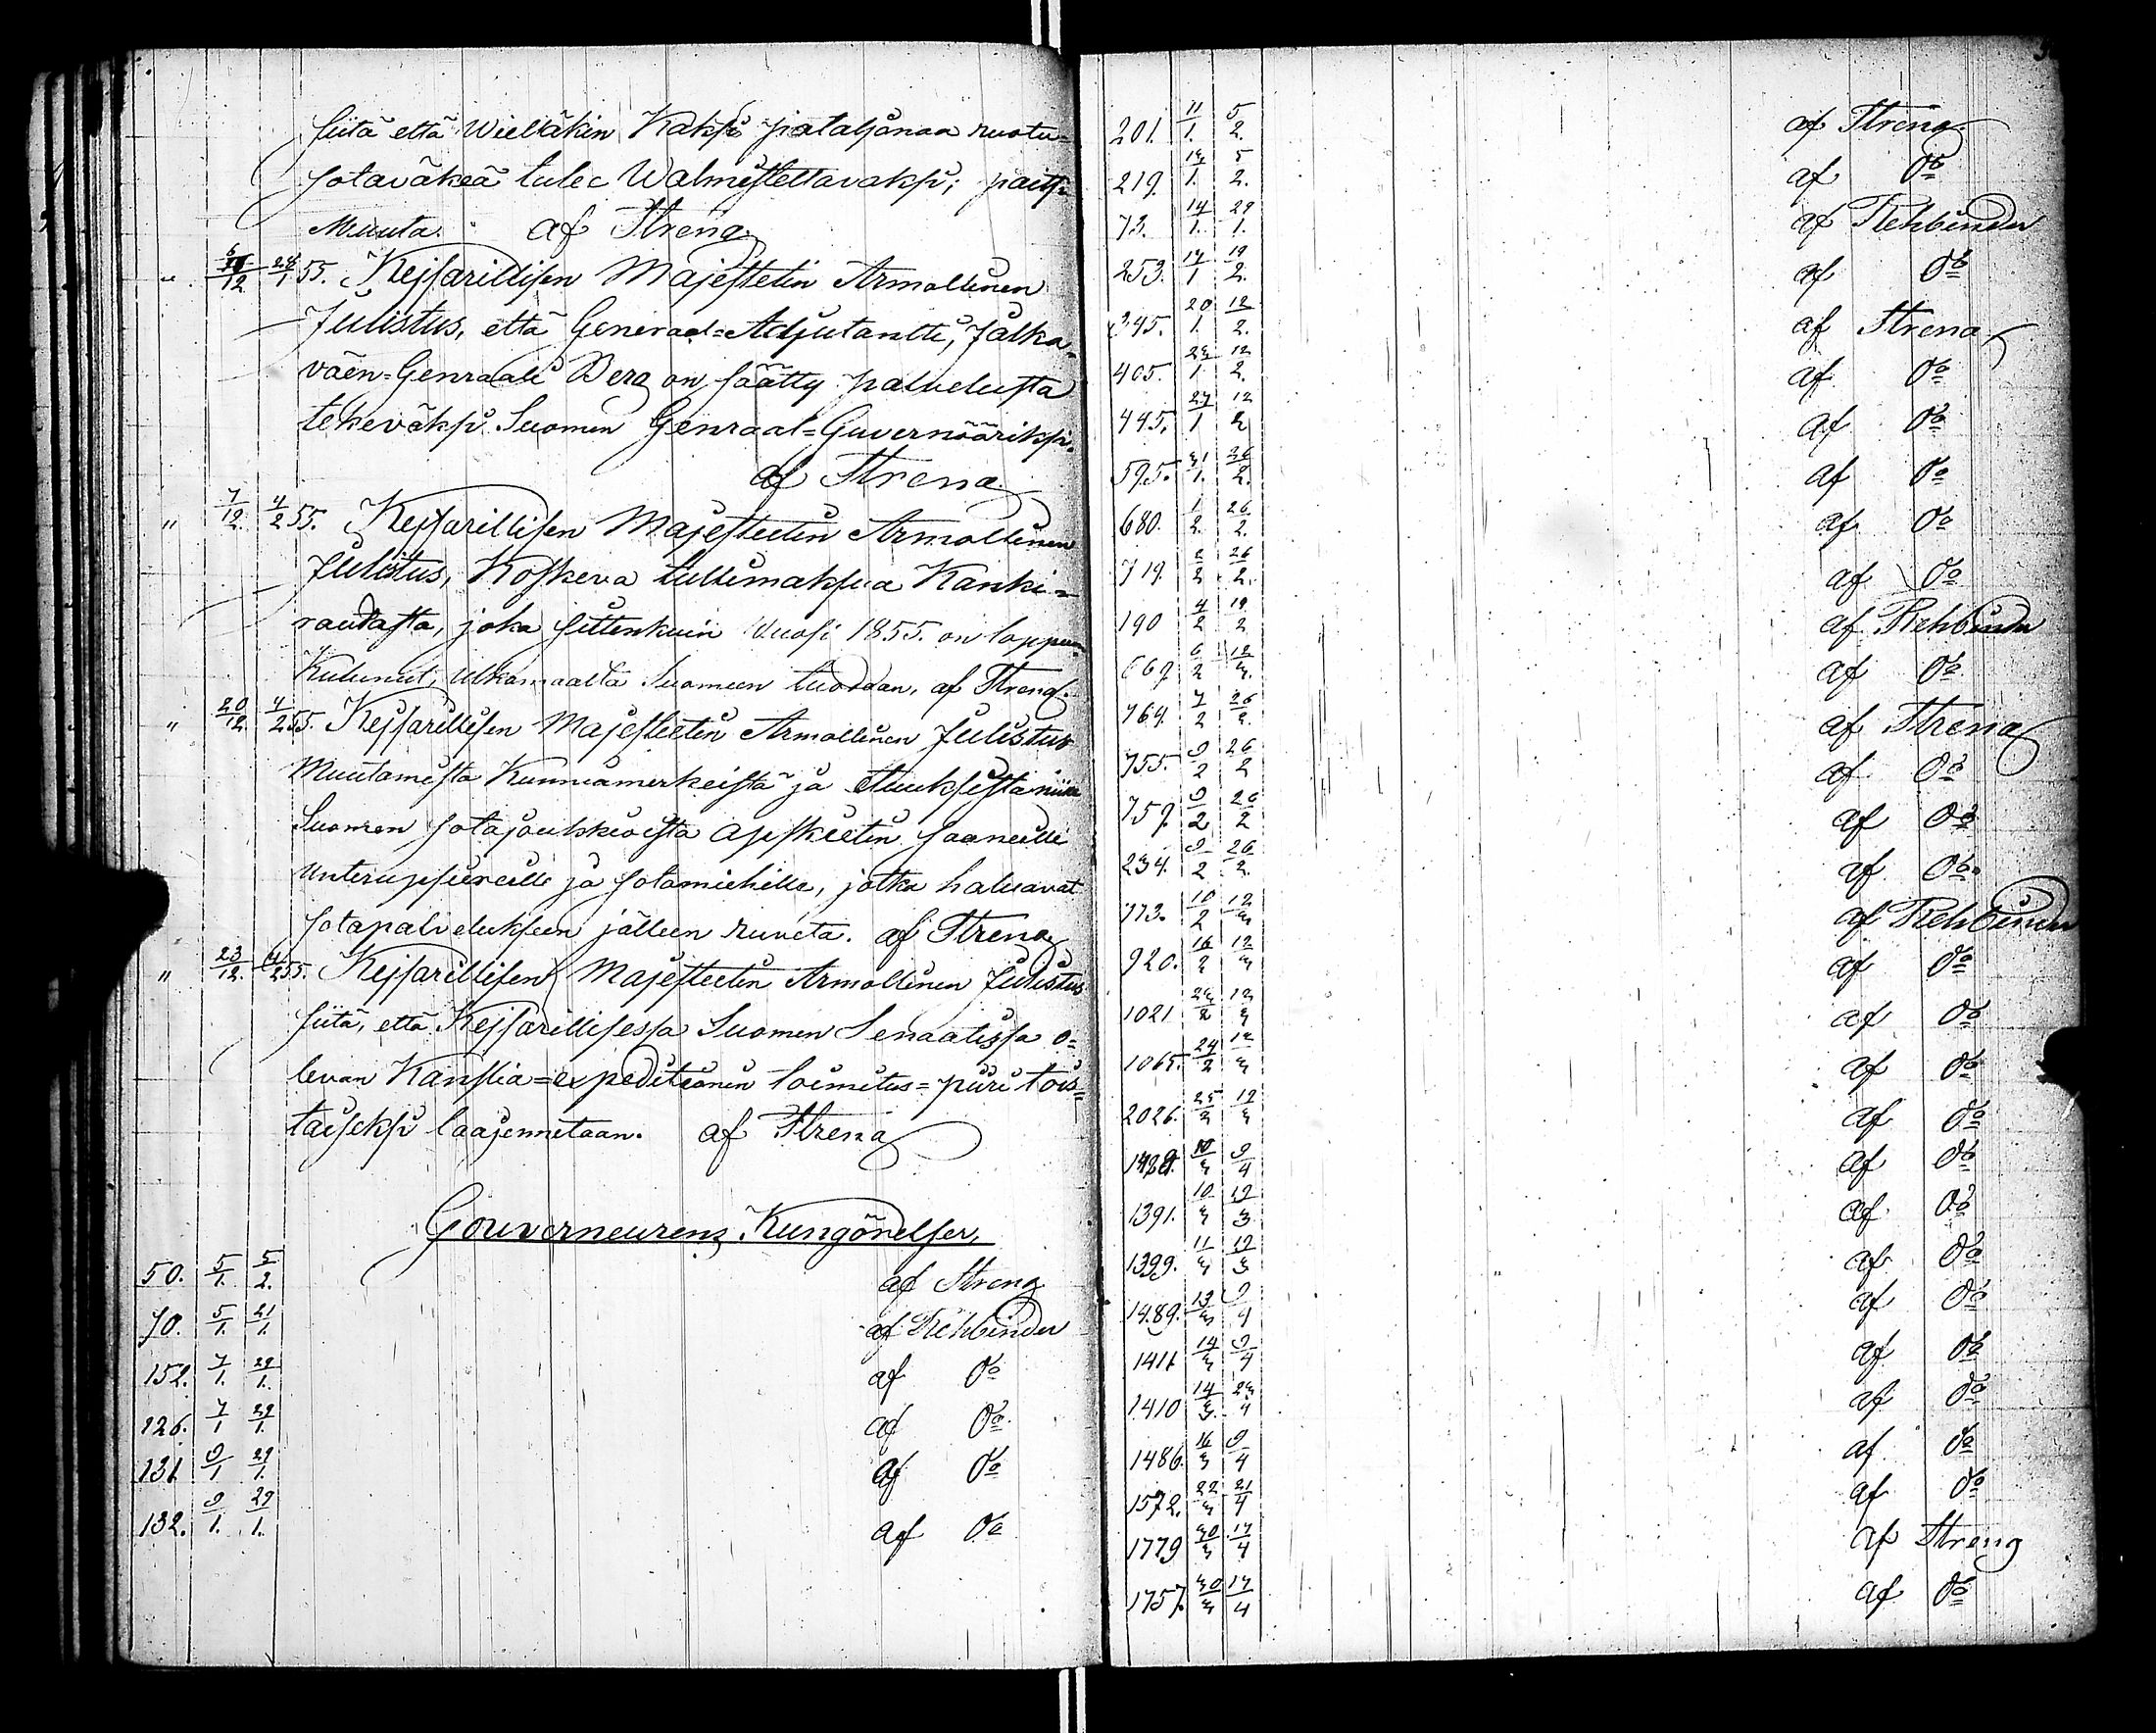 siitä että Wieläkin Kaksi pataljonaa ruotu=
sotaväkeä tulee Walmistettavaksi; paitsi
Muuta. af Streng
" 6/12 28/1 55. Kejsarillisen Majestetin Armollinen
Julistus, että General=Adjutantti, Jalka=
väen=Genraali Berg on säätty palvelusta
tekeväksi Suomen Genraal=Guvernööriksi.
af Streng
" 7/12. 4/2 55. Kejsarillisen Majesteetin Armollinen
Julistus, Koskeva tullimaksua Kanki=
raudasta, joka sittenkuin Wuosi 1855. on loppuun
Kulunut, ulkomaalta Suomeen tuodaan, af Streng.
" 20/12. 4/2 55. Kejsarillisen Majesteetin Armollinen Julistus
Muutamista Kunniamerkeistä ja etuuksista niille
Suomen sotajoukkioista Afskeetin saaneille
Unterupsiereille ja sotamiehille, jotka haluavat
sotapalvelukseen jälleen ruveta. af Streng
" 23/12. 4/2 55. Kejsarillisen Majesteetin Armollinen Julistus
siitä, että Kejsarillisessa Suomen Senaatissa o=
levan Kanslia=expeditionin toimitus=piiri tois=
taiseksi laajennetaan. af Streng
Gouverneurens Kungörelser.
50. 5/1. 5/2. af Streng
70. 5/1. 21/1. af Rehbinder
152. 7/1. 29/1. af Do
126. 7/1 29/1. af Do
131 9/1 29/1. af Do
132. 9/1. 29/1. af Do
201. 11/1. 5/2. af Streng
219. 13/1. 5/2. af Do
73. 14/1. 29/1. af Rehbinder
253. 17/1 19/2. af Do
345. 20/1. 12/2. af Streng
405. 23/1 12/2. af Do
445. 27/1 12/2 af Do
595. 31/1. 26/2. af Do
680. 1/2. 26/2. af Do
719. 2/2 26/2. af Do
190 4/2 19/2 af Rehbinder
667 6/2 12/3. af Do
764. 7/2 26/2. af Streng
755. 9/2 26/2 af Do
757. 9/2 26/2 af Do
234. 9/2 26/2. af Do
773. 10/2 12/3 af Rehbinder
920. 16/2 12/3 af Do
1021 23/2 12/3 af Do
1065. 24/2 12/3 af Do
2026. 25/2 12/3 af Do
1429. 10/3 9/4 af Do
1391. 10/3 19/3 af Do
1399. 11/3 19/3 af Do
1489. 13/3 9/4 af Do
1411 14/3 9/4 af Do
1410 14/3. 23/4 af Do
1486. 16/3 9/4 af Do
1572. 22/3 21/4 af Do
1779 30/3 17/4 af Streng
1757. 30/3 17/4 af Do